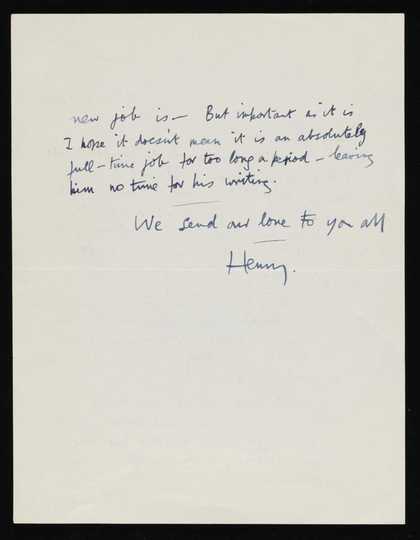 new job is — But important as it is
I hope it doesn't mean it is an absolutely
full-time job for too long a period — leaving
him no time for his writing.
We send our love to you all
Henry.